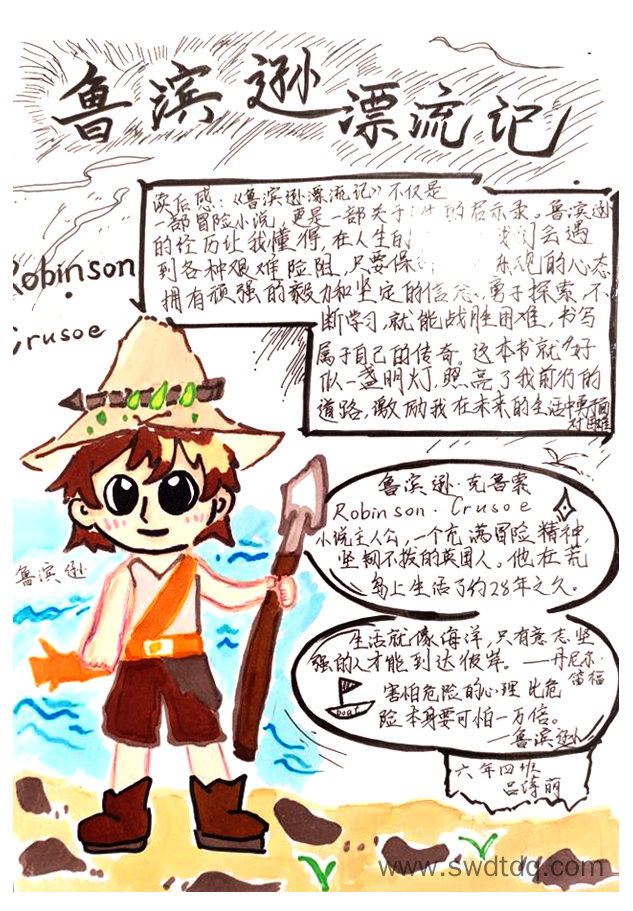 鲁滨逊漂流记
读后感:《鲁滨逊漂流记》不仅是
一部冒险小说,更是一部关于 的启示录。鲁滨逊
的经历让我懂得,在人生的 我们会遇
到各种艰难险阻,只要保 乐观的心态
拥有顽强的毅力和坚定的信念,勇于探索,不
断学习,就能战胜困难,书写
属于自己的传奇。这本书就好
似一盏明灯,照亮了我前行的
道路,激励我在未来的生活中勇于面
对困难
Robinson
Crusoe
鲁滨逊·克鲁索
Robinson. Crusoe
小说主人公,一个充满冒险精神,
坚韧不拔的英国人。他在荒
岛上生活了约28年之久。
鲁滨逊
生活就像海洋,只有意志坚
强的人才能到达彼岸。——丹尼尔·
笛福
害怕危险的心理比危
险本身要可怕一万倍。
—鲁滨逊
boat
六年四班
吕诗萌
www.swdtdq.com